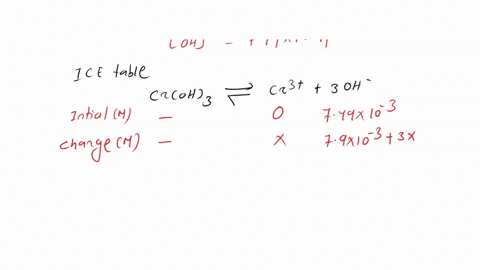 ICE table
Cr(OH)3 ⇌ Cr3+ + 3OH-
Intial (M) — 0 7.49x10-3
change (M) — x 7.9x10-3+3x